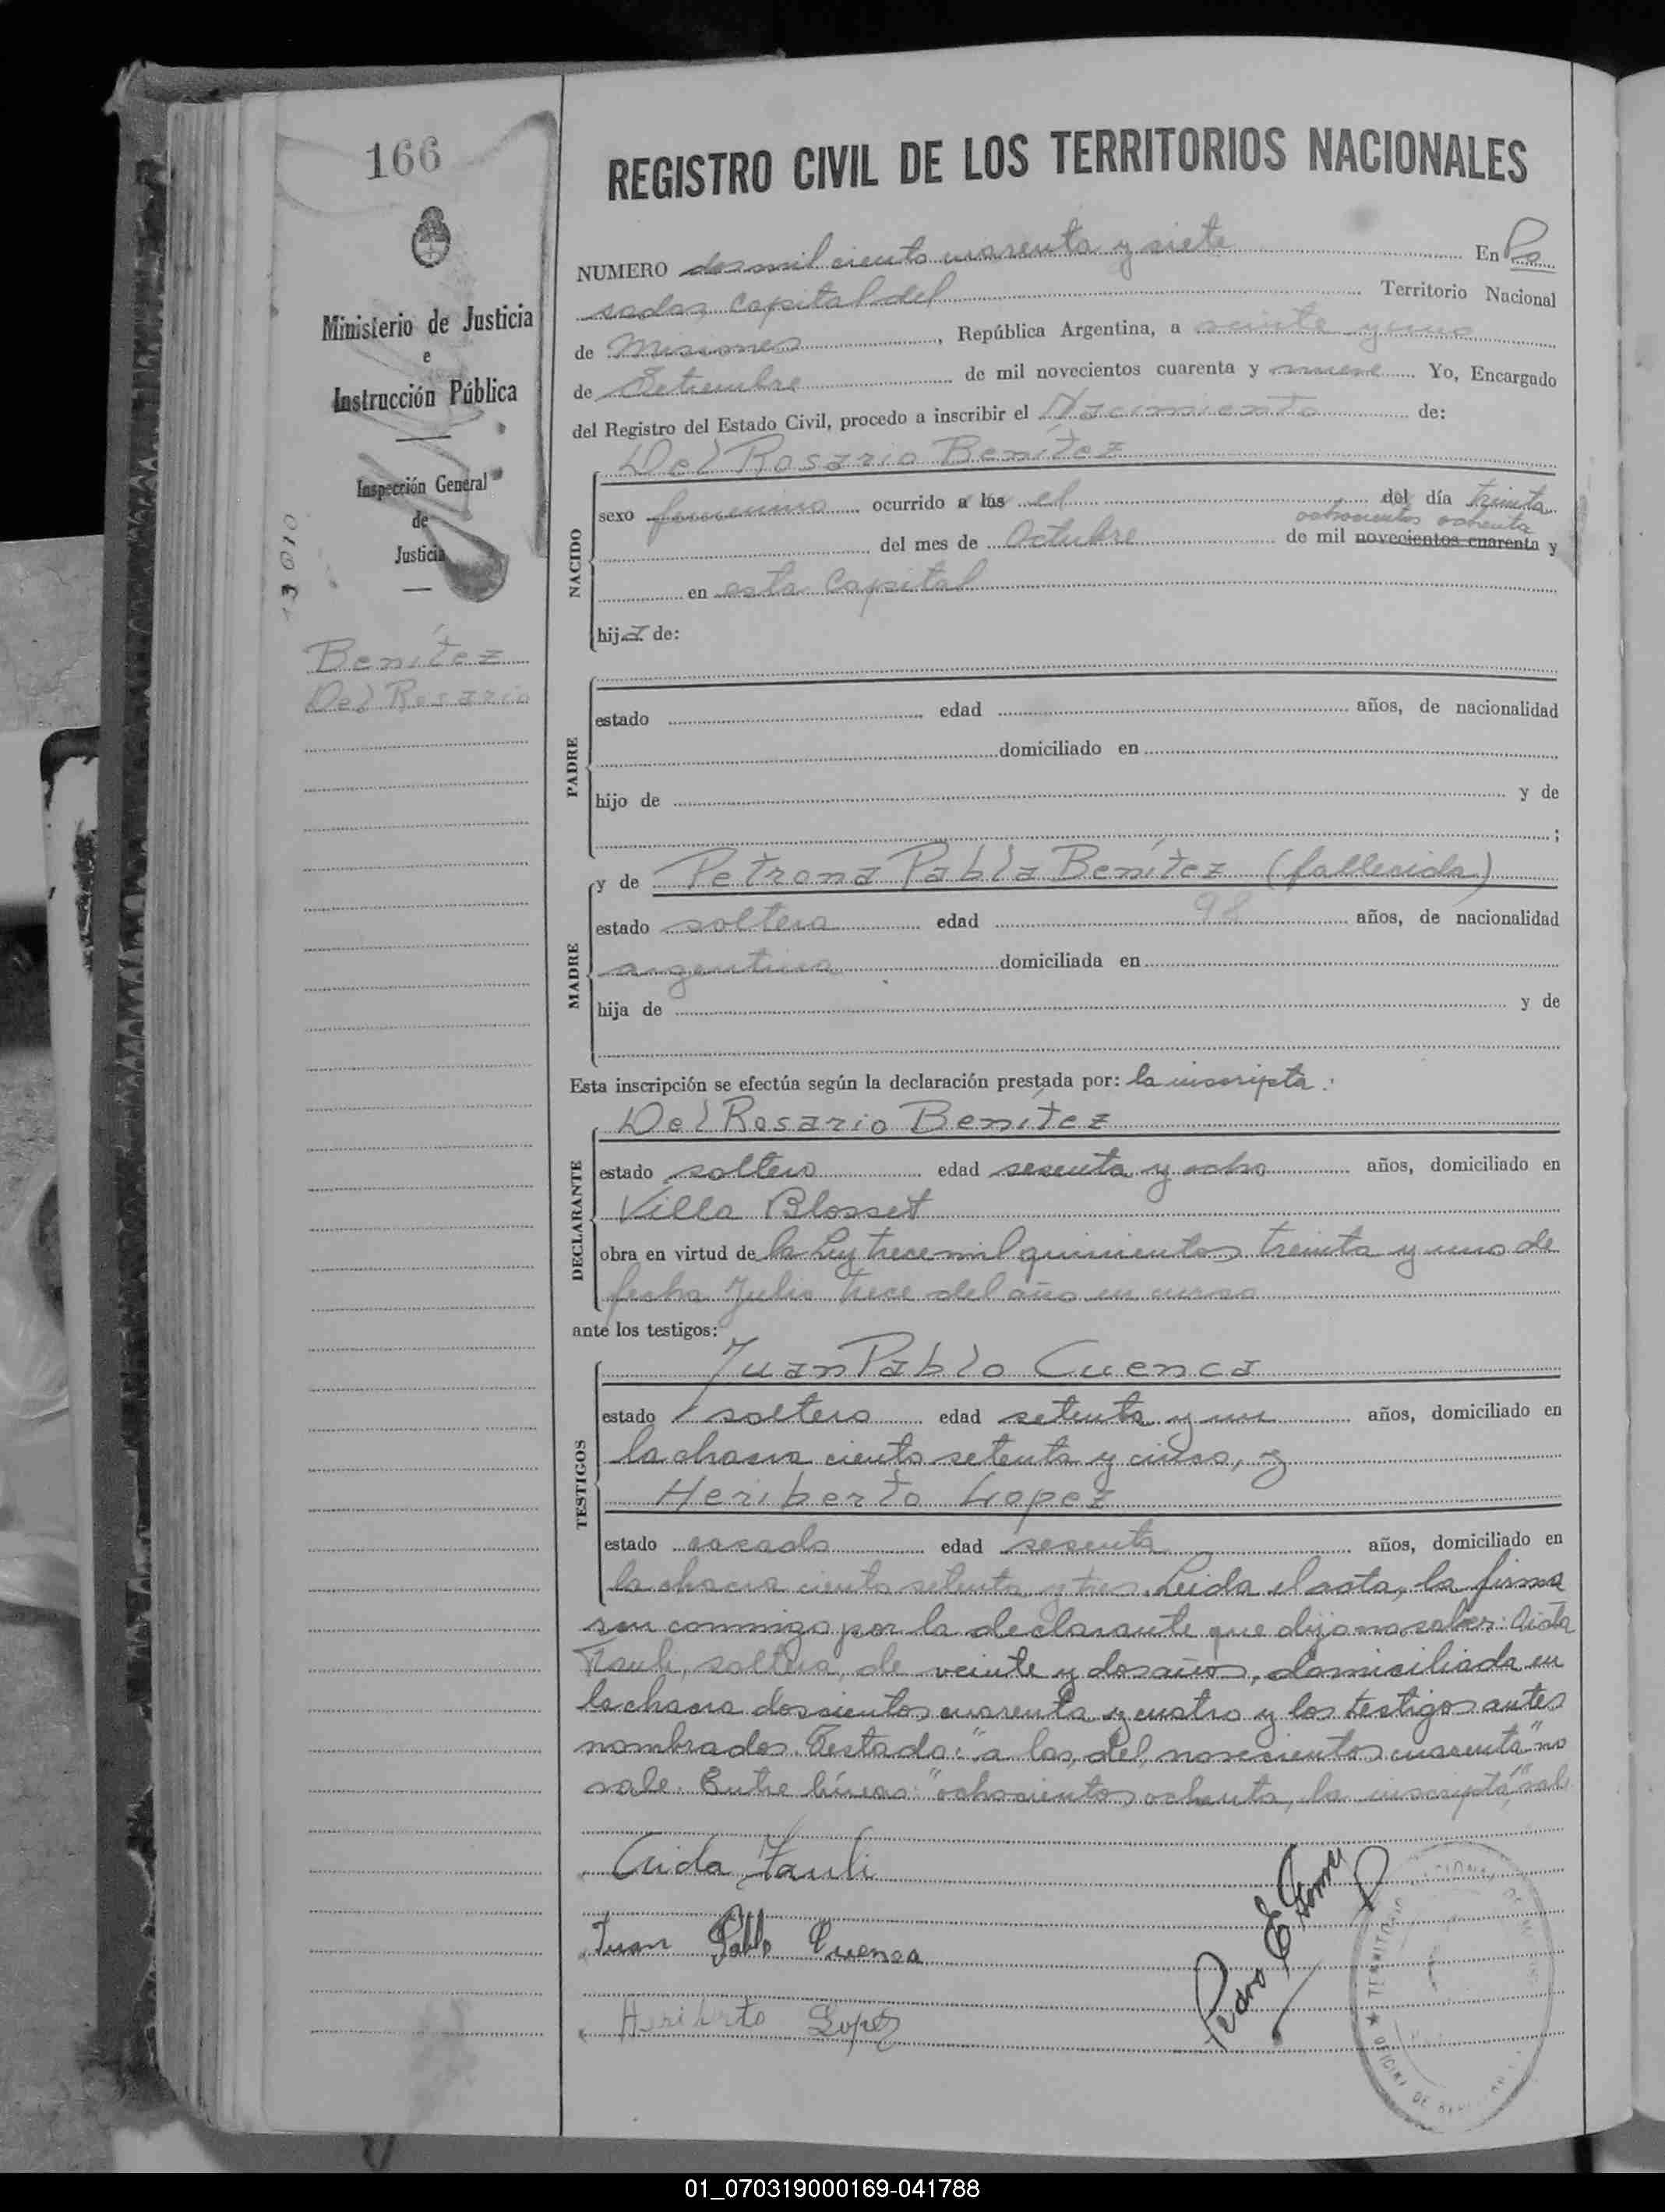 166
Ministerio de Justicia
e
Instrucción Pública
Inspección General
de
Justicia
Benítez
Del Rosario
REGISTRO CIVIL DE LOS TERRITORIOS NACIONALES
NUMERO dos mil ciento cuarenta y siete En Po
sadas, Capital del Territorio Nacional
de Misiones, República Argentina, a veinte y uno
de Setiembre de mil novecientos cuarenta y nueve Yo, Encargado
del Registro del Estado Civil, procedo a inscribir el Nacimiento de:
Del Rosario Benítez
NACIDO
sexo femenino ocurrido a las el del día treinta
ochocientos ochenta
del mes de Octubre de mil novecientos cuarenta y
en esta Capital
hija de:
PADRE
estado edad años, de nacionalidad
domiciliado en
hijo de y de
;
MADRE
y de Petrona Pabla Benítez (fallecida)
estado soltera edad 98 años, de nacionalidad
argentina domiciliada en
hija de y de
Esta inscripción se efectúa según la declaración prestada por: la inscripta:
DECLARANTE
Del Rosario Benítez
estado soltera edad sesenta y ocho años, domiciliado en
Villa Blosset
obra en virtud de la Ley trece mil quinientos treinta y uno de
fecha Julio trece del año en curso
ante los testigos:
TESTIGOS
Juan Pablo Cuenca
estado soltero edad setenta y un años, domiciliado en
la chacra ciento setenta y cinco, y
Heriberto Lopez
estado casado edad sesenta años, domiciliado en
la chacra ciento setenta y tres. Leida el acta, la firma
con conmigo por la declarante que dijo no saber: Aida
Fauli, soltera, de veinte y dos años, domiciliada en
la chacra doscientos cuarenta y cuatro y los testigos antes
nombrados. Testado: "a las, del, novecientos cuarenta" no
vale. Entre líneas: "ochocientos ochenta, la inscripta," vale
Aida Fauli
Juan Pablo Cuenca
Heriberto Lopez
Pedro E
★ TERRITORIO
OFICINA DE
01_070319000169-041788